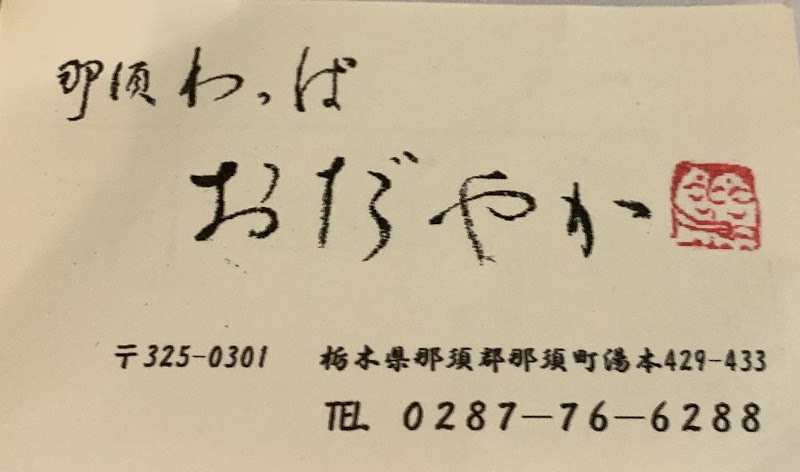 那須わっぱ
おだやか
〒325-0301 栃木県那須郡那須町湯本429-433
TEL 0287-76-6288